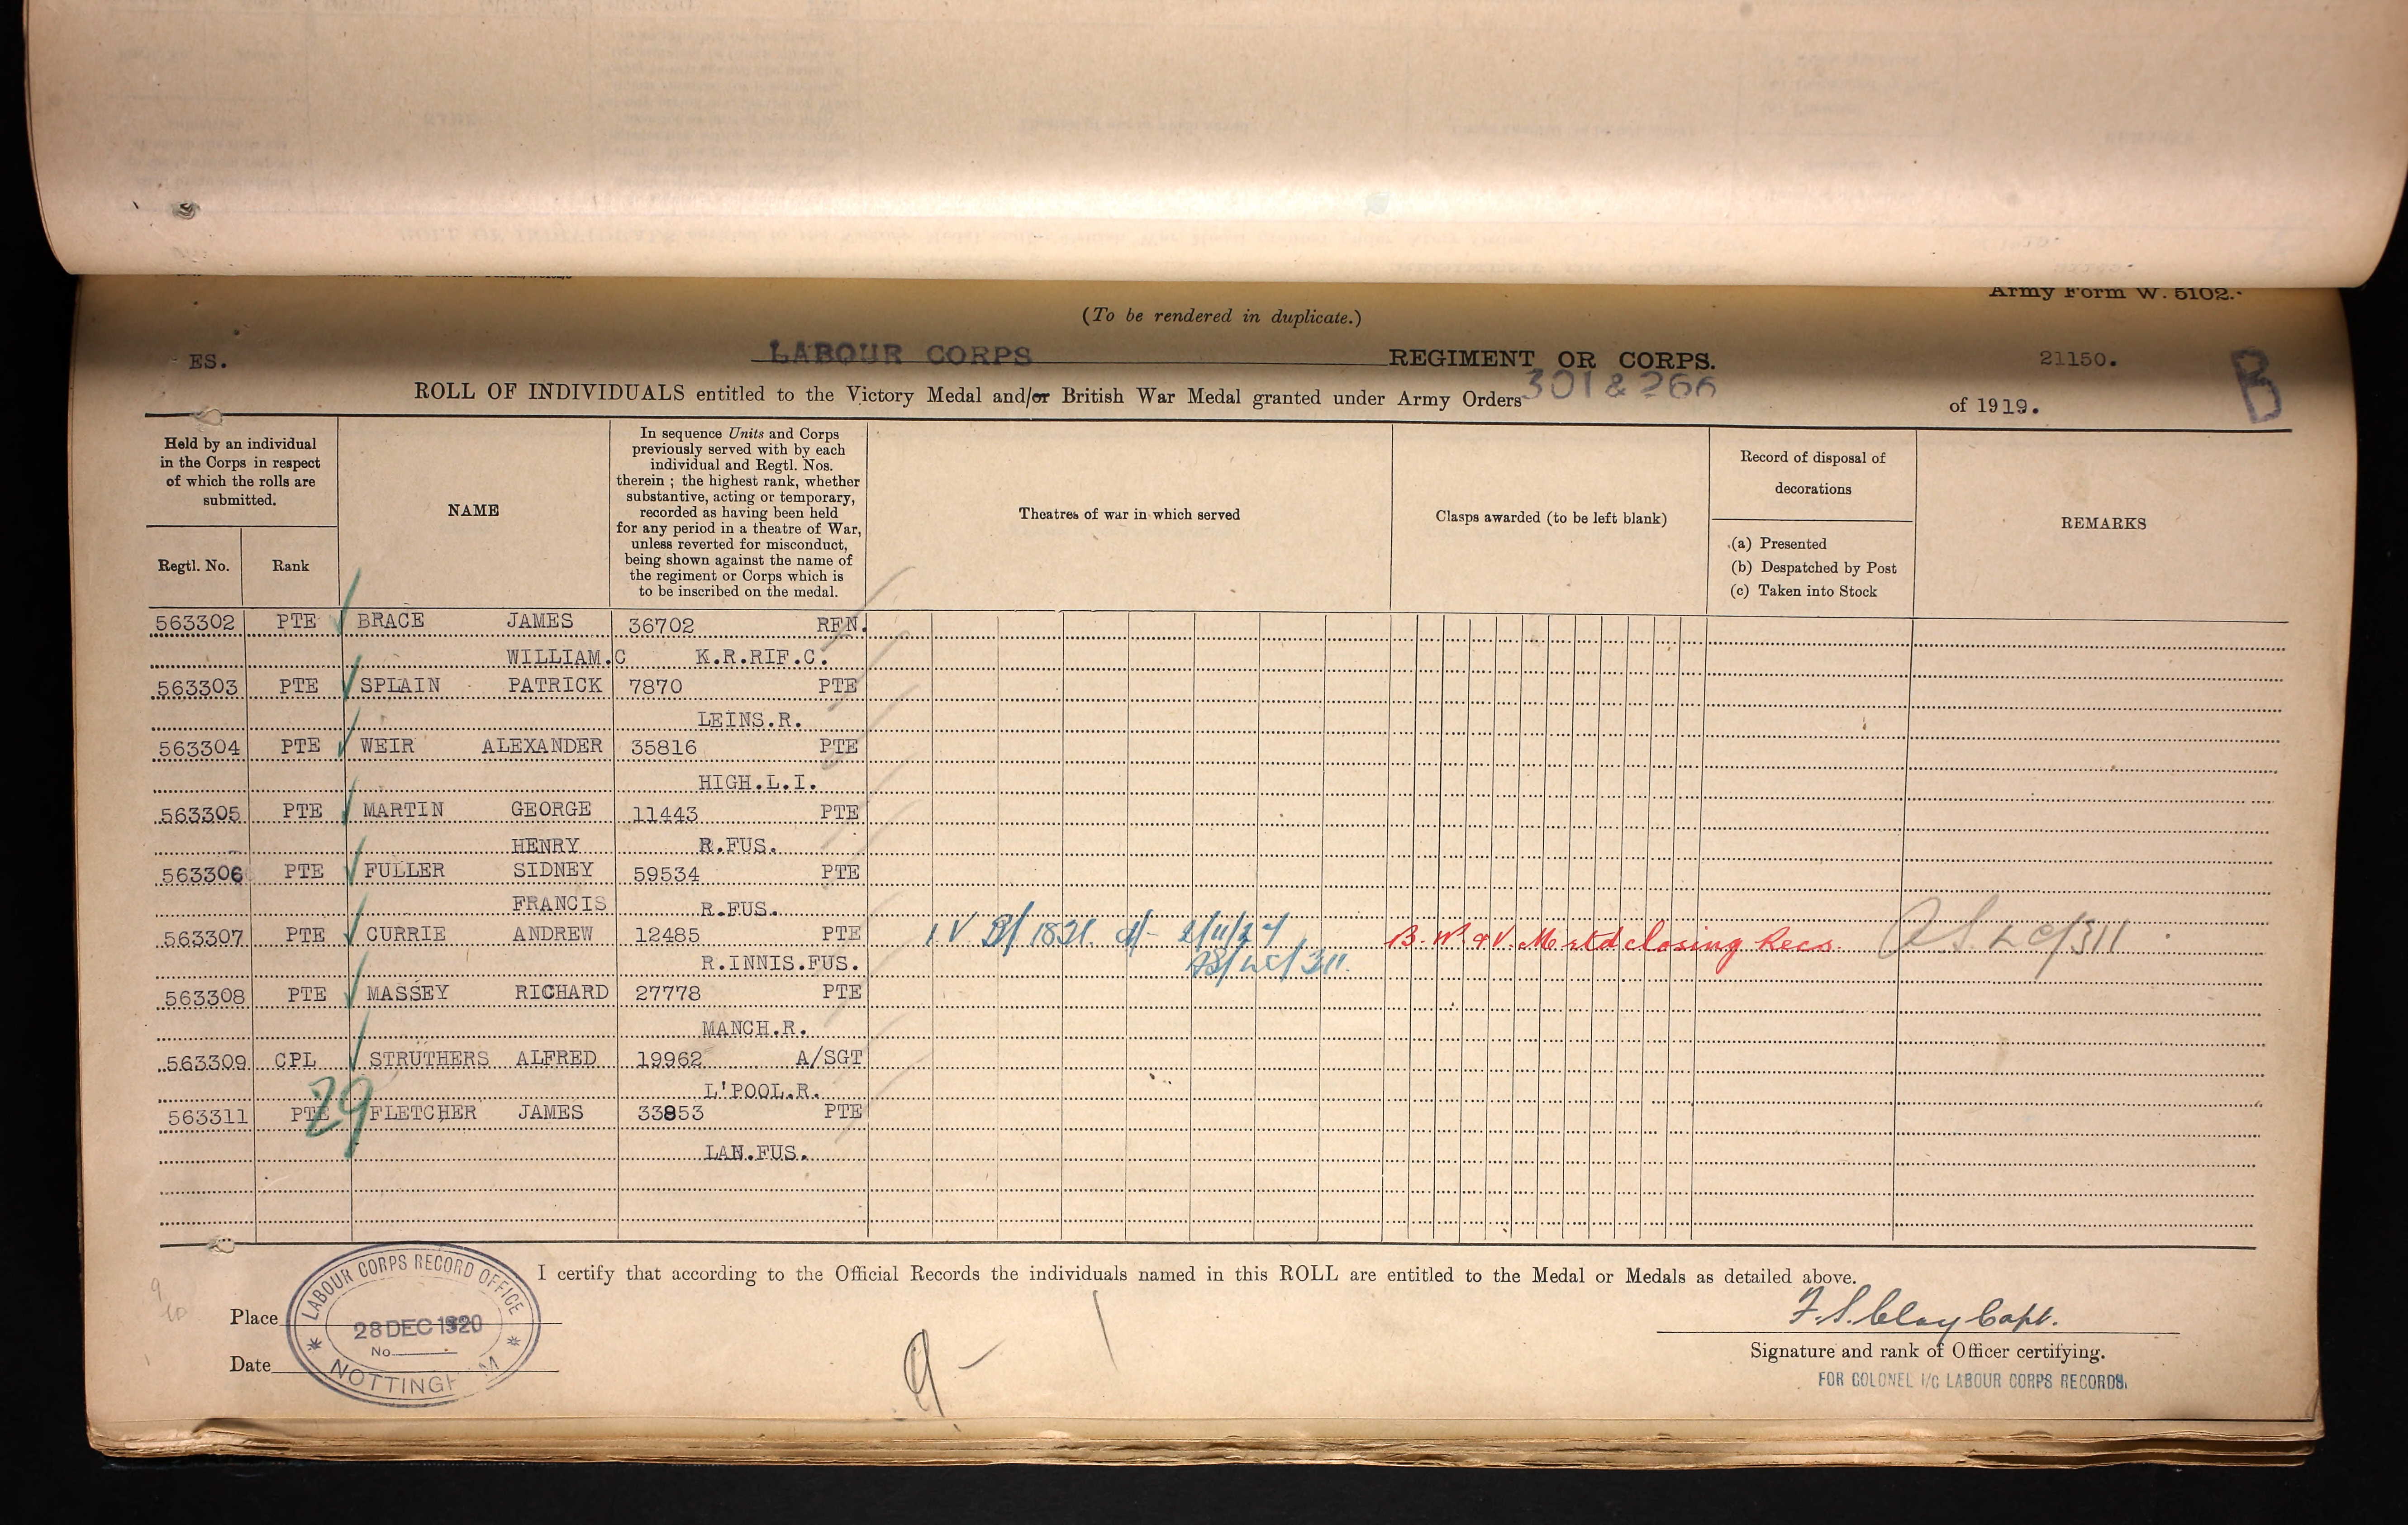 Army Form W. 5102.
(To be rendered in duplicate.)
ES. LABOUR CORPS REGIMENT OR CORPS. 21150. B
ROLL OF INDIVIDUALS entitled to the Victory Medal and/or British War Medal granted under Army Orders 301 & 266 of 1919.
Held by an individual in the Corps in respect of which the rolls are submitted.
Regtl. No.
Rank
NAME
In sequence Units and Corps
previously served with by each
individual and Regtl. Nos.
therein ; the highest rank, whether
substantive, acting or temporary,
recorded as having been held
for any period in a theatre of War,
unless reverted for misconduct,
being shown against the name of
the regiment or Corps which is
to be inscribed on the medal.
Theatres of war in which served
Clasps awarded (to be left blank)
Record of disposal of
decorations
(a) Presented
(b) Despatched by Post
(c) Taken into Stock
REMARKS
563302 PTE BRACE JAMES 36702 RFN.
WILLIAM.C K.R.RIF.C.
563303 PTE SPLAIN PATRICK 7870 PTE
LEINS.R.
563304 PTE WEIR ALEXANDER 35816 PTE
HIGH.L.I.
563305 PTE MARTIN GEORGE 11443 PTE
HENRY R.FUS.
563306 PTE FULLER SIDNEY 59534 PTE
FRANCIS R.FUS.
563307 PTE CURRIE ANDREW 12485 PTE 1 V B/1831 B. W. & V. M closing Recs. LC/311
R.INNIS.FUS. LC/311.
563308 PTE MASSEY RICHARD 27778 PTE
MANCH.R.
563309 CPL STRUTHERS ALFRED 19962 A/SGT
L'POOL.R.
563311 PTE 29 FLETCHER JAMES 33853 PTE
LAN.FUS.
I certify that according to the Official Records the individuals named in this ROLL are entitled to the Medal or Medals as detailed above.
Place
LABOUR CORPS RECORD OFFICE
28 DEC 1920
No
NOTTINGHAM
Date
9
F.S. Clay Capt.
Signature and rank of Officer certifying.
FOR COLONEL I/C LABOUR CORPS RECORDS.